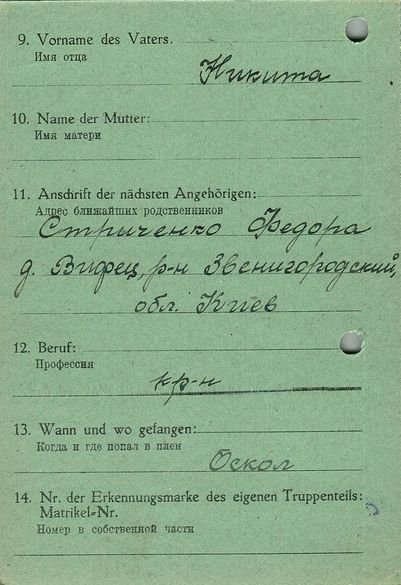 9. Vorname des Vaters.
Имя отца
Никита
10. Name der Mutter:
Имя матери
11. Anschrift der nächsten Angehörigen:
Адрес ближайших родственников
Стриченко Федора
д. Вифец, р-н Звенигородский,
обл. Киев
12. Beruf:
Профессия
кр-н
13. Wann und wo gefangen:
Когда и где попал в плен
Оскол
14. Nr. der Erkennungsmarke des eigenen Truppenteils:
Matrikel-Nr.
Номер в собственной части